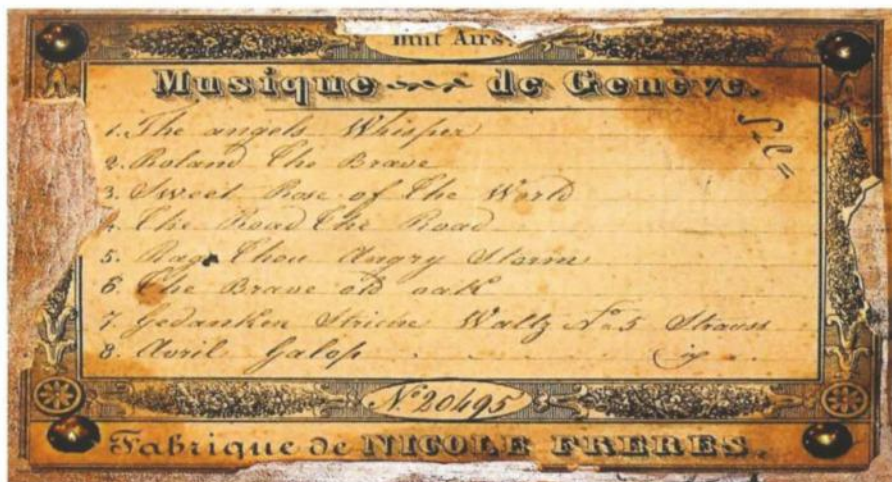 Huit Airs.
Musique de Genève.
1. The angels Whisper
2. Roland the Brave
3. Sweet Rose of the World
4. The Road the Road
5. Rage thou Angry Storm
6. The Brave old oak
7. Gedanken Striche Waltz No. 5 Strauss
8. Avril Galop
No 20495
Fabrique de NICOLE FRERES.